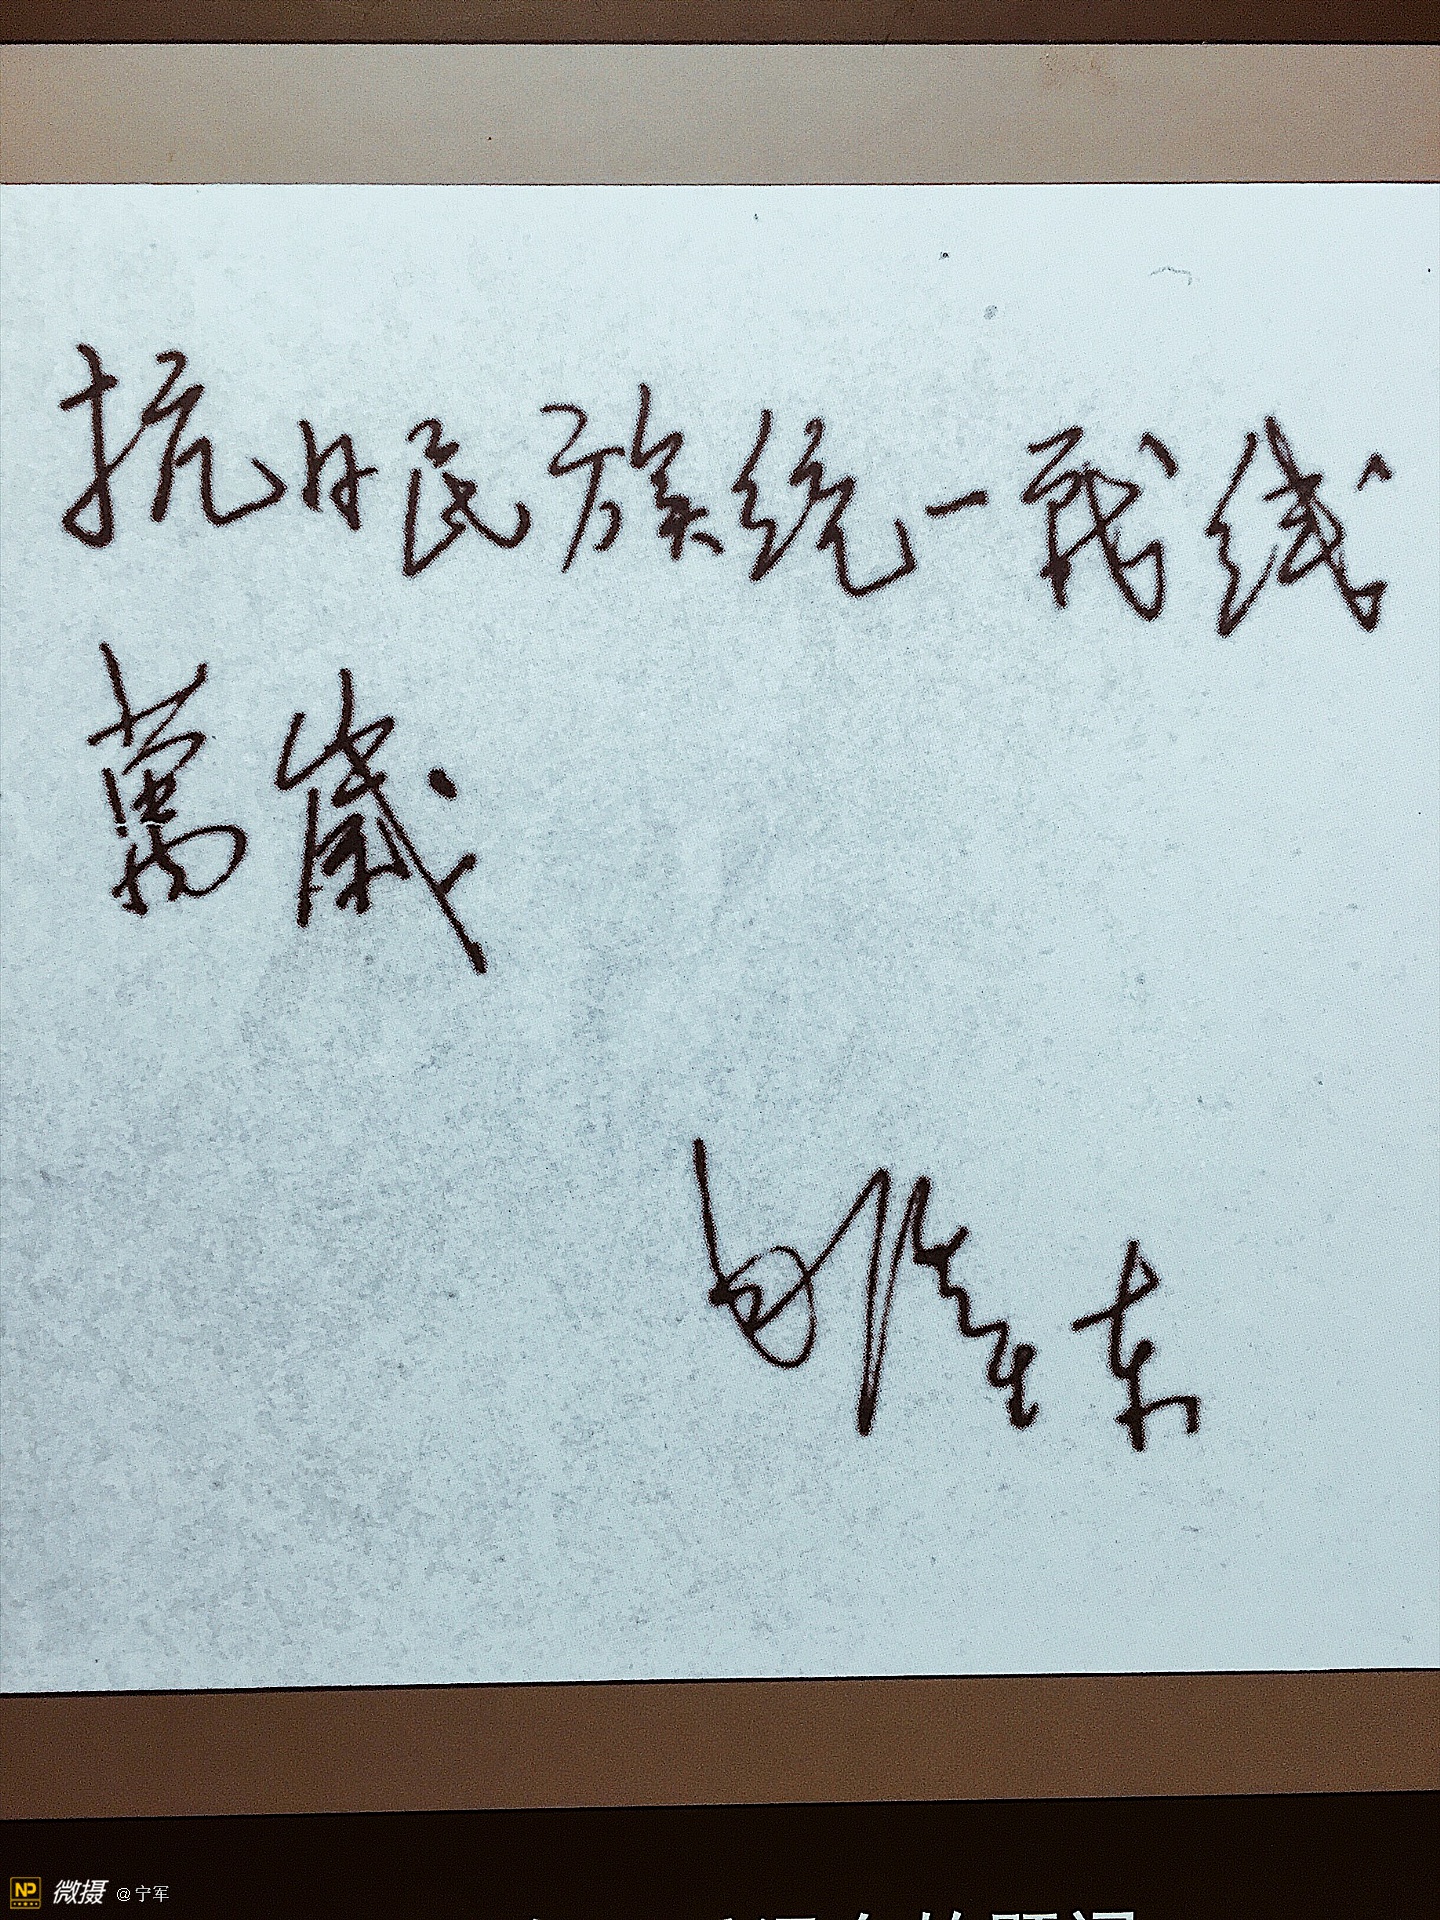 抗日民族统一战线
萬歲
NP 微摄 @宁军
的题词